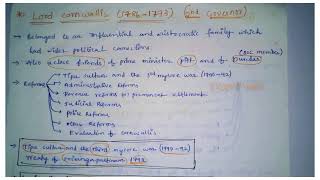 * Lord Cornwallis (1786-1793) gov governor
→ Belonged to an influential and aristocratic family which
had wider political connections
(BOC member)
→ Also a close friends of prime minister pitt and of Dundas
→ Reforms → Tipu sultan and the 3rd mysore war (1790-92)
→ Administrative Reforms
→ Revenue reforms or permanent settlement
→ Judicial Reforms
→ Police Reforms
→ Other Reforms
→ Evaluation of cornwallis
→ Tipu sultan and the third mysore war (1790-92)
Treaty of Srirangapatnam 1792